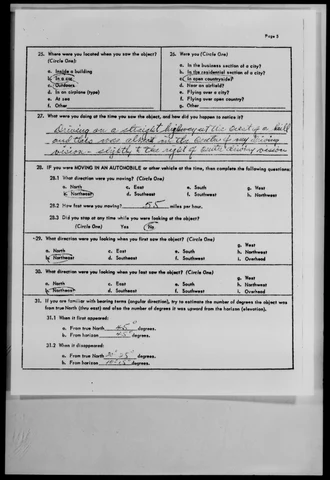 Page 2
25. Where were you located when you saw the object? (Circle One):
a. Inside a building
b. In a car
c. Outdoors
d. In an airplane (type)
e. At sea
f. Other
26. Were you (Circle One)
a. In the business section of a city?
b. In the residential section of a city?
c. In open countryside?
d. Near an airfield?
e. Flying over a city?
f. Flying over open country?
g. Other
27. What were you doing at the time you saw the object, and how did you happen to notice it?
Driving on a straight highway at the crest of a hill
and this was almost in the center of my driving
vision - slightly to the right of center driving vision
28. IF you were MOVING IN AN AUTOMOBILE or other vehicle at the time, then complete the following questions:
28.1 What direction were you moving? (Circle One)
a. North c. East e. South g. West
b. Northeast d. Southeast f. Southwest h. Northwest
28.2 How fast were you moving? 55 miles per hour.
28.3 Did you stop at any time while you were looking at the object?
(Circle One) Yes No
29. What direction were you looking when you first saw the object? (Circle One)
a. North c. East e. South g. West
b. Northeast d. Southeast f. Southwest h. Northwest
i. Overhead
30. What direction were you looking when you last saw the object? (Circle One)
a. North c. East e. South g. West
b. Northeast d. Southeast f. Southwest h. Northwest
i. Overhead
31. If you are familiar with bearing terms (angular direction), try to estimate the number of degrees the object was
from true North (thru east) and also the number of degrees it was upward from the horizon (elevation).
31.1 When it first appeared:
a. From true North 45° degrees.
b. From horizon 45° degrees.
31.2 When it disappeared:
a. From true North degrees.
b. From horizon degrees.